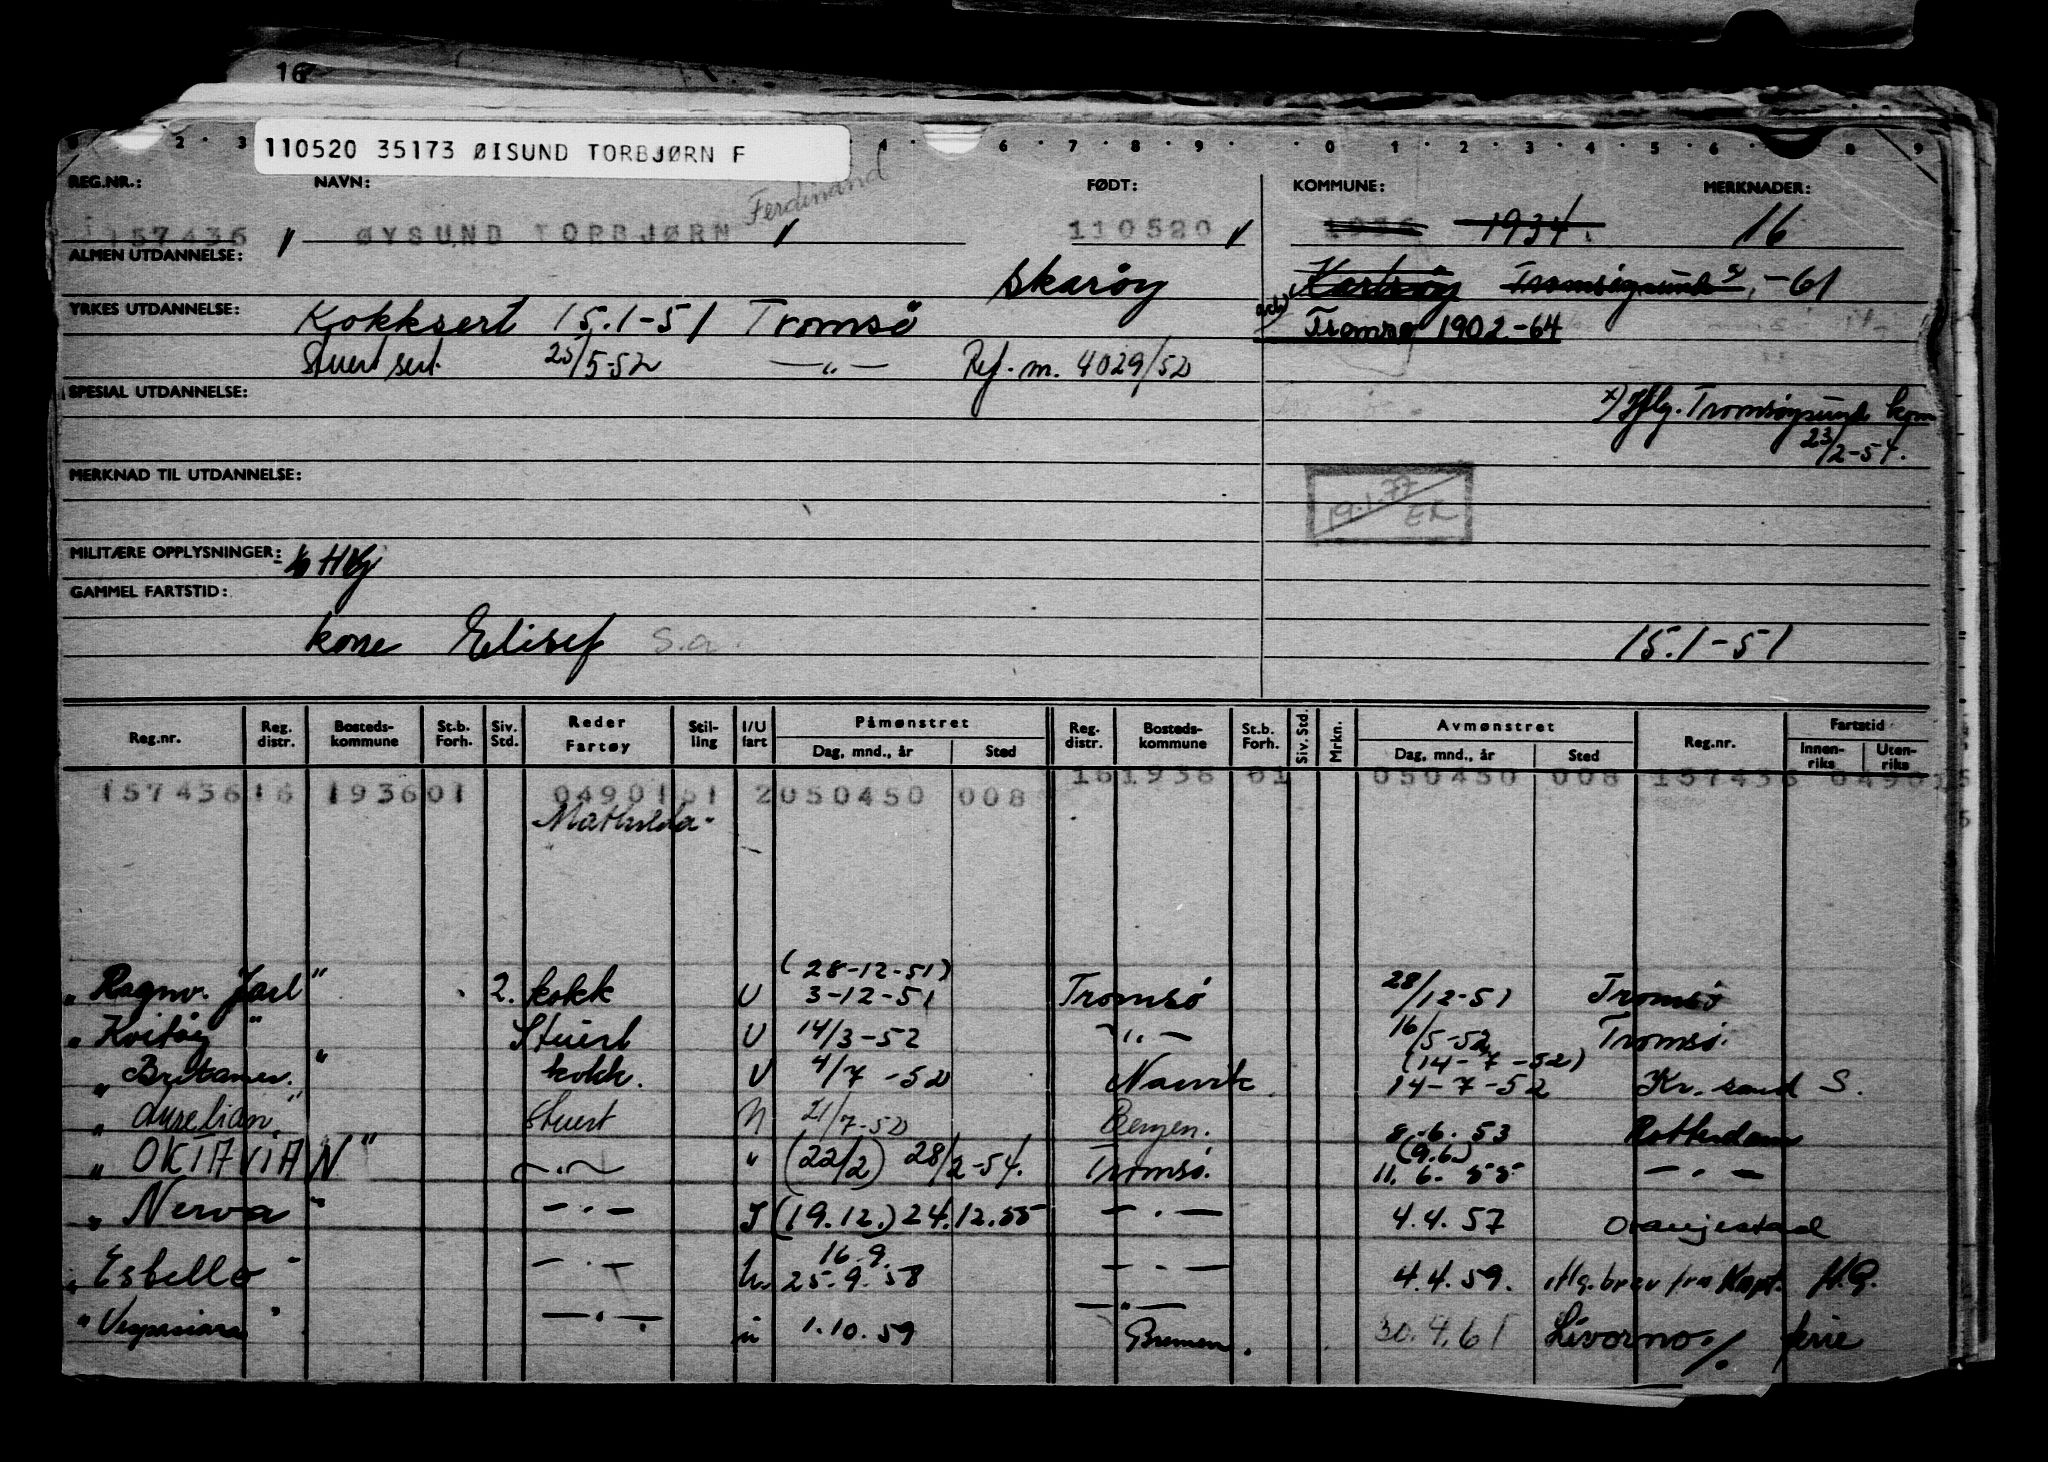 16
110520 35173 ØISUND TORBJØRN F
REG.NR.: NAVN: Ferdinand FØDT: KOMMUNE: MERKNADER:
157436 ØYSUND TORBJØRN 110520 1936 1934 16
ALMEN UTDANNELSE: Skarøy Karlsøy Tromsøysund x) -61
YRKES UTDANNELSE: Kokksert 15.1-51 Tromsø Tromsø 1902-64
Stuert sert. 25/5-52 —"— Ref. m. 4029/52
SPESIAL UTDANNELSE: x) Iflg. Tromsøysund kom
23/2-54.
MERKNAD TIL UTDANNELSE:
19.1.77 ER
MILITÆRE OPPLYSNINGER:
GAMMEL FARTSTID:
kone Elisef s.a. 15.1-51
Reg.nr. Reg. distr. Bosteds-kommune St.b. Forh. Siv. Std. Reder Fartøy Stil-ling I/U fart Påmønstret Dag, mnd., år Sted Reg. distr. Bosteds-kommune St.b. Forh. Siv. Std. Mrkn. Avmønstret Dag, mnd., år Sted Reg.nr. Fartstid Innen-riks Uten-riks
157436 16 1936 01 0490151 2 050450 008 16 1936 01 050450 008 157436 0490
Mathilda
(28-12-51)
"Ragnv. Jarl" 2. kokk U 3-12-51 Tromsø 28/12-51 Tromsø
"Kvitøy" Stuert U 14/3-52 —"— 16/5-52 Tromsø.
(14-7-52)
"Britamer." kokk. U 4/7-52 Narvik 14-7-52 Kr. sand S.
"Aurelian" Stuert U 21/7-52 Bergen. 8.6.53 Rotterdam
"OKTAVIAN" —"— " (22/2) 28/2-54. Tromsø. (9.6) 11.6.55 —"—
"Nerva" —"— I (19.12.) 24.12.55 —"— 4.4.57 Oranjestad
16.9.
"Esbello" —"— u. 25.9.58 —"— 4.4.59. Iflg. brev fra Kapt. H.G.
"Vespasian" —"— u 1.10.59 —"— Bremen. 30.4.61 Livorno ferie